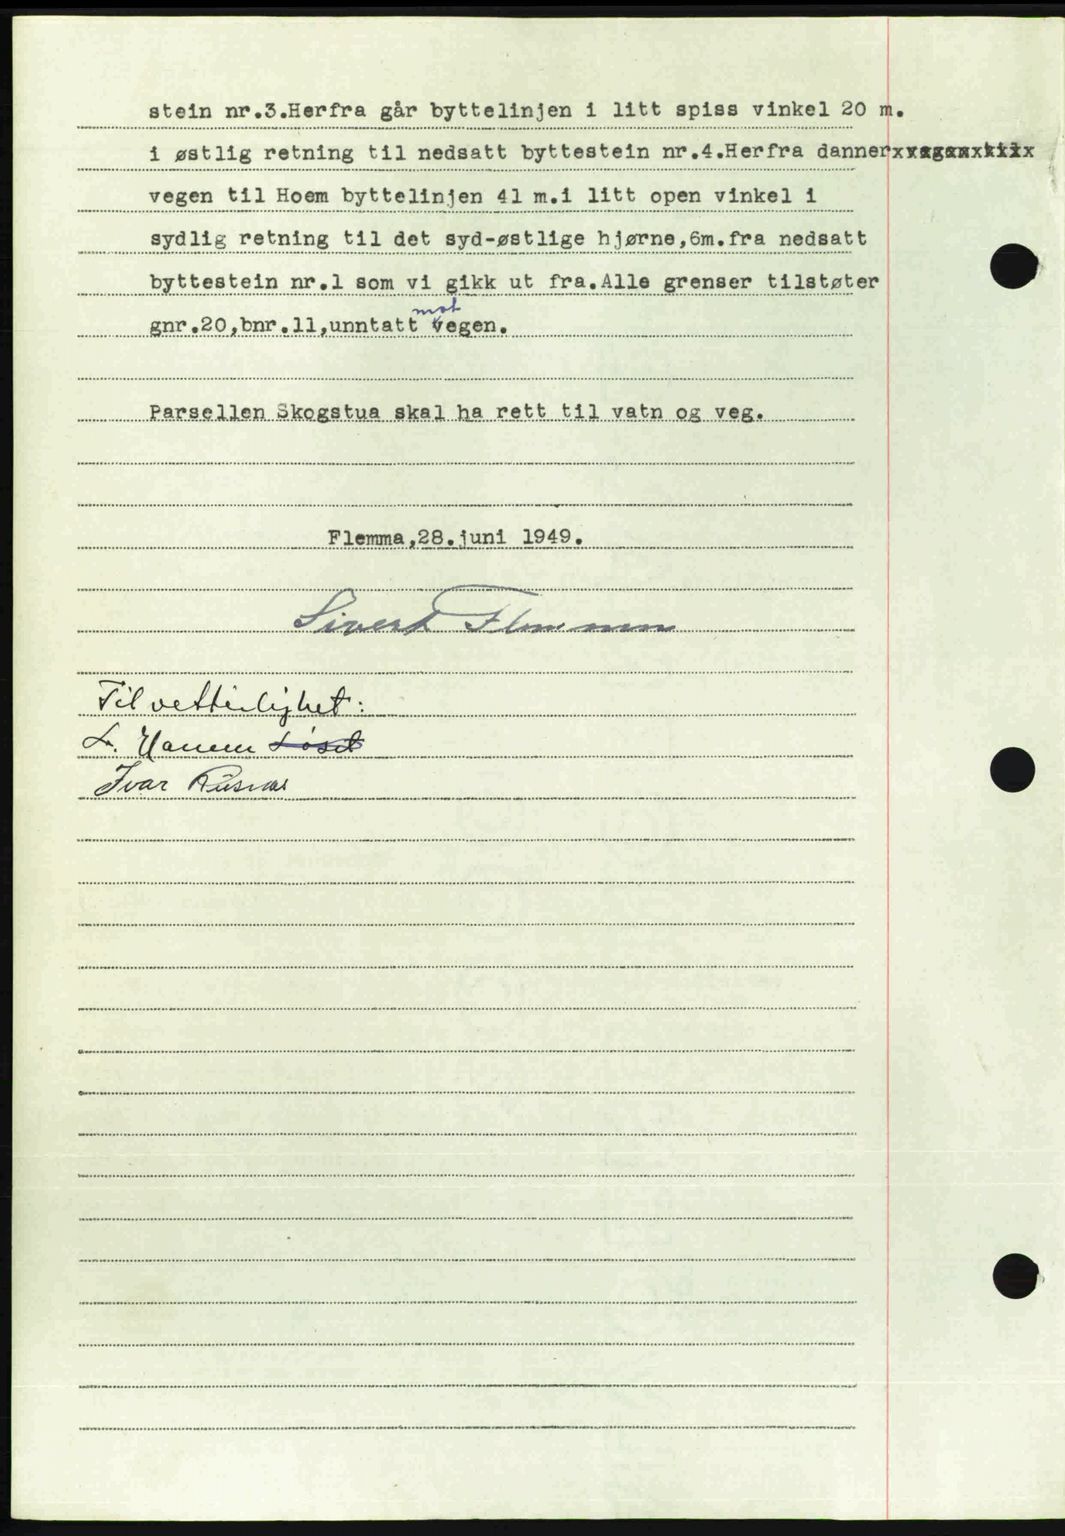 stein nr.3.Herfra går byttelinjen i litt spiss vinkel 20 m.
i østlig retning til nedsatt byttestein nr.4.Herfra danner
vegen til Hoem byttelinjen 41 m.i litt open vinkel i
sydlig retning til det syd-østlige hjørne,6m.fra nedsatt
byttestein nr.1 som vi gikk ut fra.Alle grenser tilstøter
mot
gnr.20,bnr.11,unntatt vegen.
Parsellen Skogstua skal ha rett til vatn og veg.
Flemma,28.juni 1949.
Sivert Flemmen
Til vetterlighet:
L. Løset
Ivar